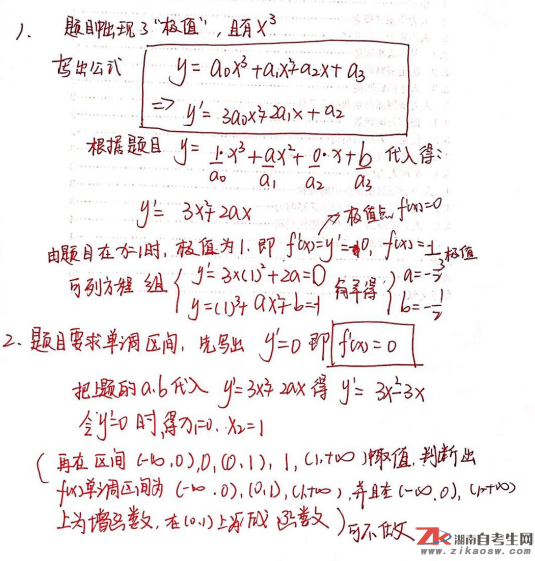 1. 题目中出现了“极值”，且有x³
写出公式 y = a₀x³+a₁x²+a₂x+a₃
=> y' = 3a₀x²+2a₁x+a₂
根据题目 y = 1·x³+ax²+0·x+b 代入得:
a₀ a₁ a₂ a₃
y' = 3x²+2ax
极值点 f'(x)=0
由题目在x=1时, 极值为1. 即 f'(x)=y'=0, f(x)=1 极值
可列方程组 { y'=3×(1)²+2a=0 解得 { a=-3/2
y=(1)³+ax²+b=1 b=-1/2
2. 题目要求单调区间, 先写出 y'=0 即 f'(x)=0
把上题的a.b代入 y'=3x²+2ax 得 y'=3x²-3x
令y'=0时,得x₁=0. x₂=1
(再在区间(-∞,0),0,(0,1),1,(1,+∞)中取值,判断出
f(x)单调区间为(-∞,0),(0,1),(1,+∞),并且在(-∞,0),(1,+∞)
上为增函数,在(0,1)上为减函数)可不做
湖南自考生网
www.zikaosw.com